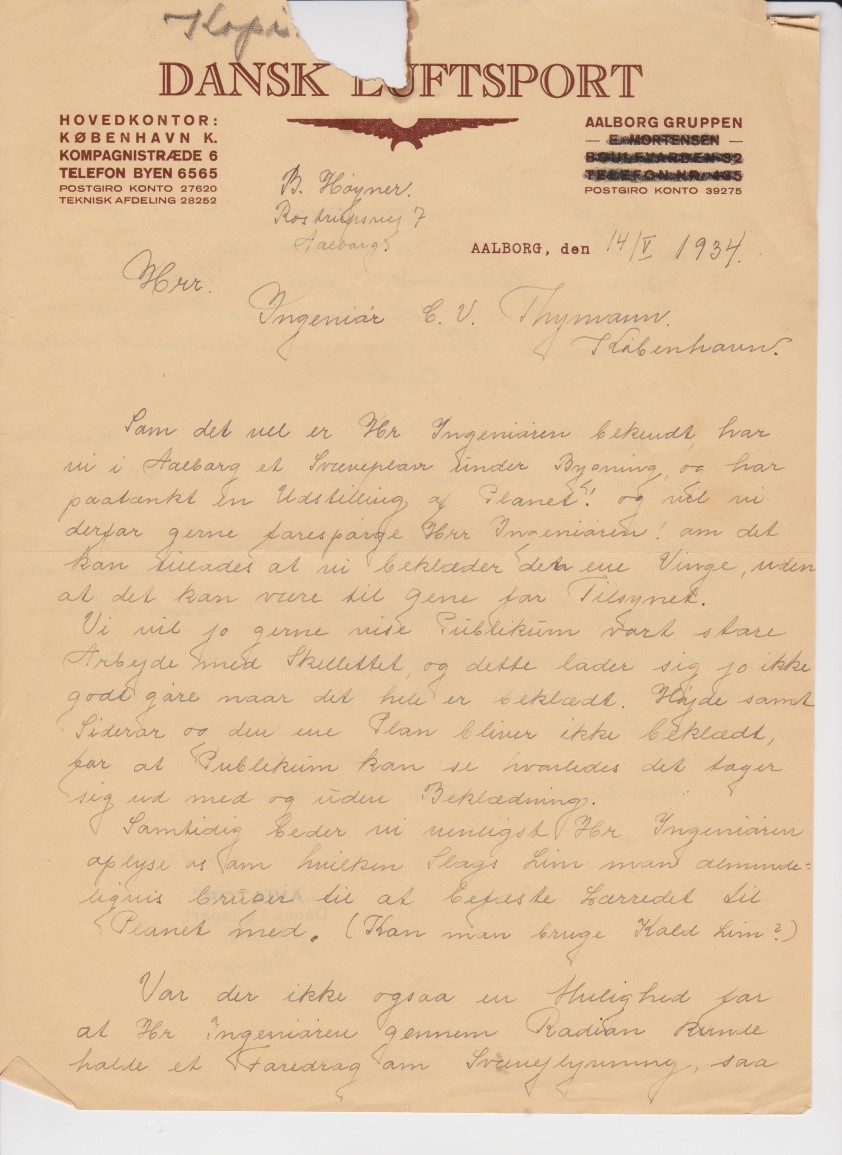 Kopi.
DANSK LUFTSPORT
HOVEDKONTOR:
KØBENHAVN K.
KOMPAGNISTRÆDE 6
TELEFON BYEN 6565
POSTGIRO KONTO 27620
TEKNISK AFDELING 28252
AALBORG GRUPPEN
— E. MORTENSEN —
BOULEVARDEN 32
TELEFON NR. 435
POSTGIRO KONTO 39275
B. Høyner.
7
Aalborg.
AALBORG, den 14/V 1934.
Hrr.
Ingeniør C. V. Thymann.
København.
Som det vel er Hr Ingeniøren bekendt, har
vi i Aalborg et Svæveplan under Bygning, og har
paatænkt en Udstilling af Planet! og vil vi
derfor gerne forespørge Hrr Ingeniøren! om det
kan tillades at vi beklæder den ene Vinge, uden
at det kan være til Gene for Tilsynet.
Vi vil jo gerne vise Publikum vort store
Arbejde med Skellettet, og dette lader sig jo ikke
godt gøre naar det hele er beklædt. Højde samt
Sideror og den ene Plan bliver ikke beklædt,
for at Publikum kan se hvorledes det tager
sig ud med og uden Beklædning.
Samtidig beder vi venligst Hr Ingeniøren
oplyse os om hvilken Slags Lim man alminde=
ligvis bruger til at befæste Lærredet til
Planet med. (Kan man bruge Kold Lim?)
Var der ikke ogsaa en Mulighed for
at Hr Ingeniøren gennem Radioen kunde
holde et Foredrag om Svæveflyvning, saa